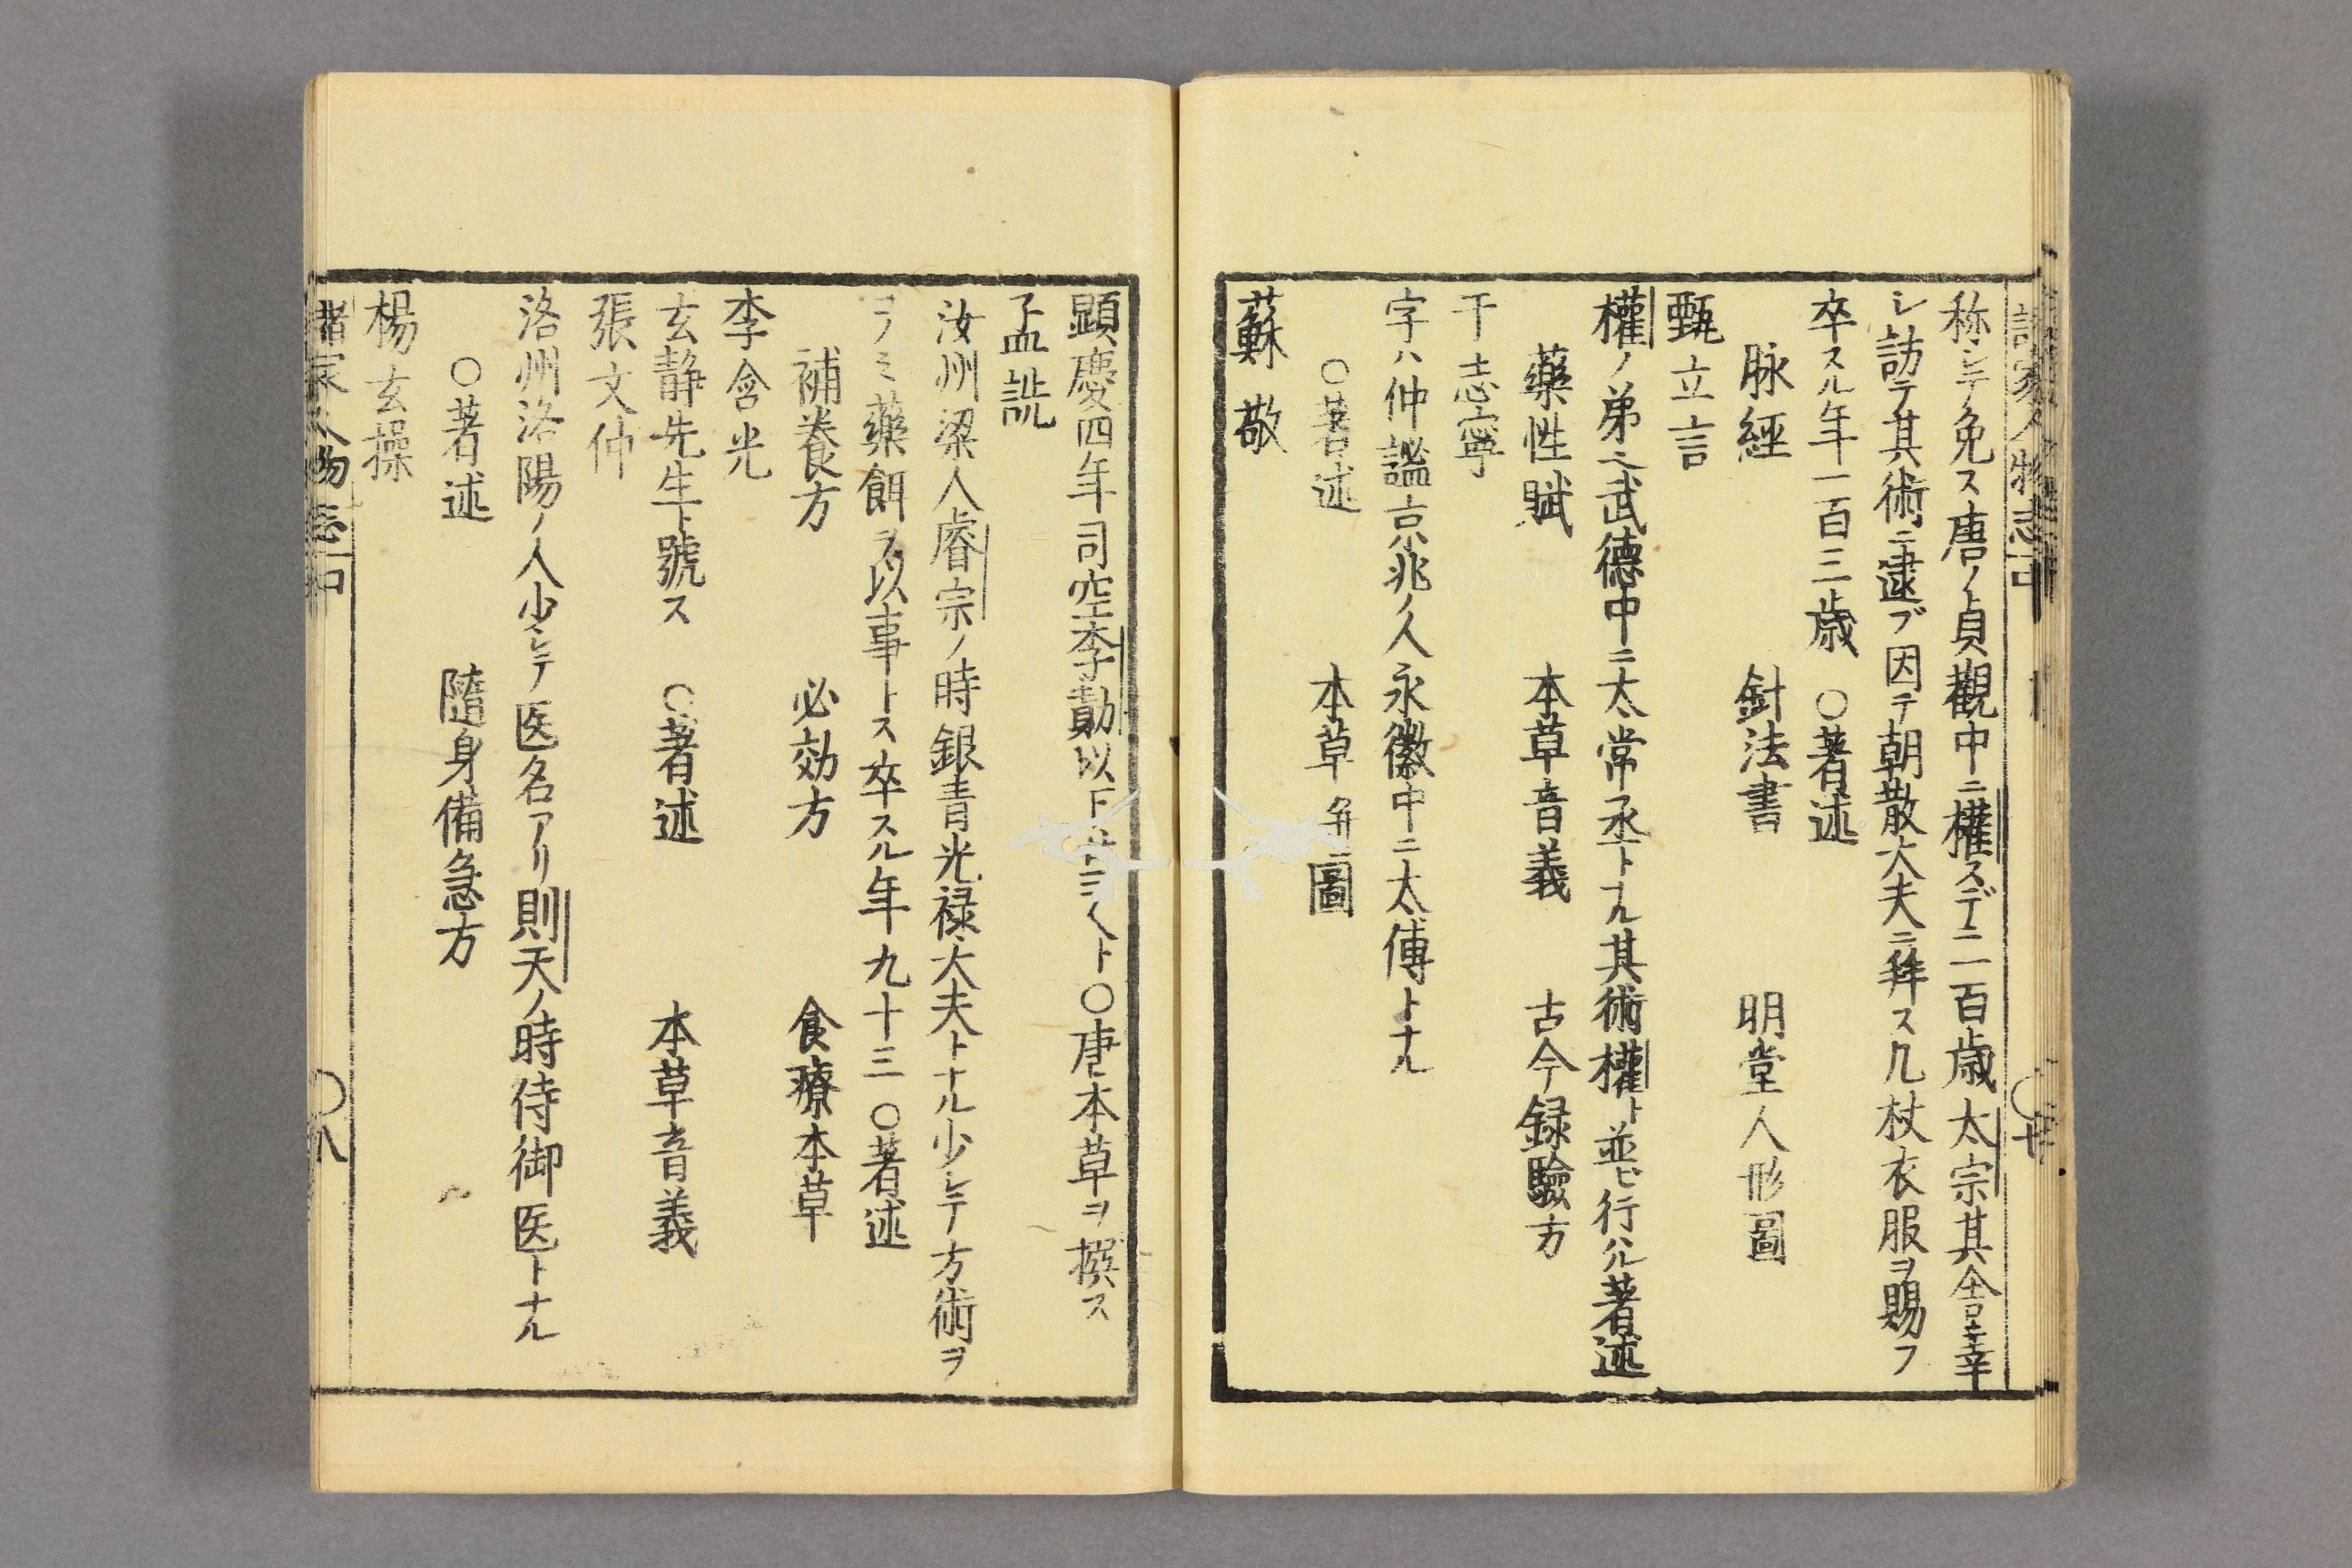 称シテ免ス唐ノ貞觀中ニ權スデニ一百歳太宗其舎ニ幸
シ訪テ其術ニ逮ブ因テ朝散大夫ニ拜ス几杖衣服ヲ賜フ
卒スル年一百三歳 ○著述
脉經 針法書 明堂人形圖
甄立言
權ノ弟ニ武德中ニ太常丞トナル其術權ト並ビ行ハル著述
藥性賦 本草音義 古今録驗方
于志寧
字ハ仲謐京兆ノ人永徽中ニ太傅トナル
○著述 本草并圖
蘇敬
顕慶四年司空李勣以下 ト○唐本草ヲ撰ス
孟詵
汝州梁人睿宗ノ時銀青光禄大夫トナル少シテ方術ヲ
藥餌ヲ以事トス卒スル年九十三 ○著述
補養方 必効方 食療本草
李含光
玄静先生ト號ス ○著述 本草音義
張文仲
洛州洛陽ノ人少シテ医名アリ則天ノ時侍御医トナル
○著述 隨身備急方
楊玄操
諸家人物志